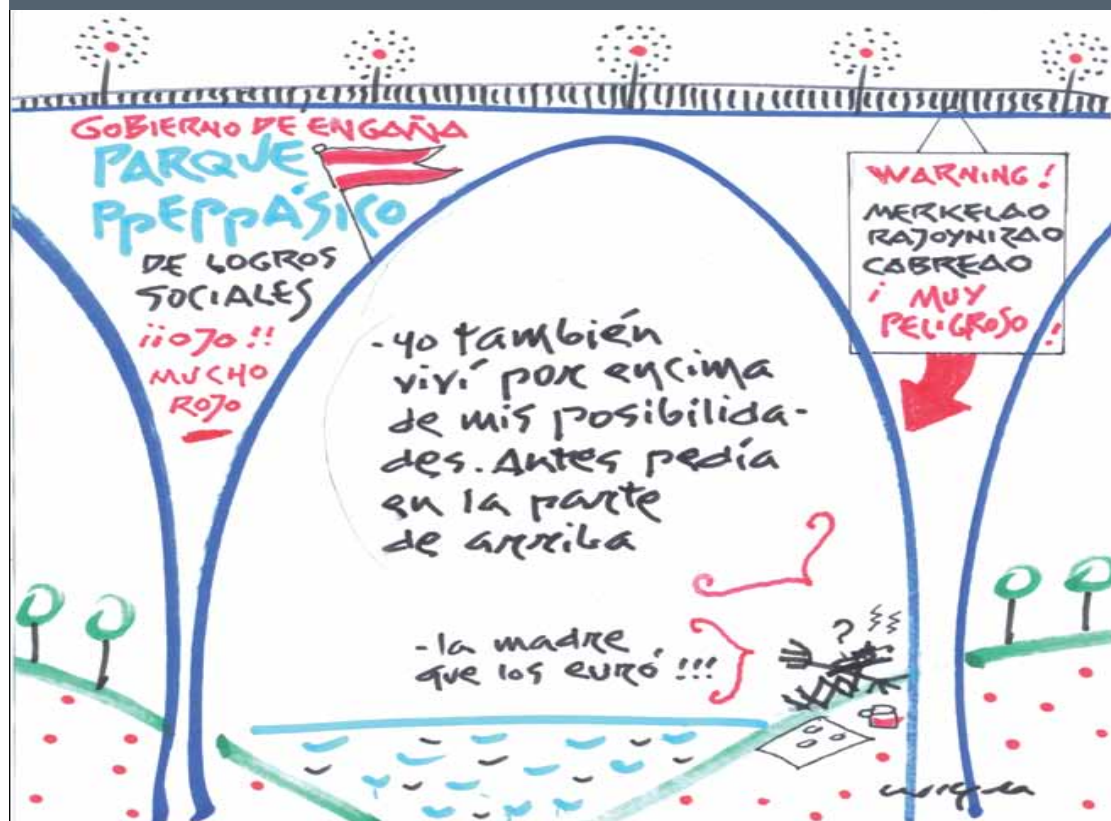 GOBIERNO DE ENGAÑA
PARQUE
PPEPPÁSICO
DE LOGROS
SOCIALES
¡¡OJO!!
MUCHO
ROJO
WARNING!
MERKELAO
RAJOYNIZAO
CABREAO
¡MUY
PELIGROSO!
-yo también
viví por encima
de mis posibilida-
des. Antes pedía
en la parte
de arriba
-la madre
que los euró!!!
?